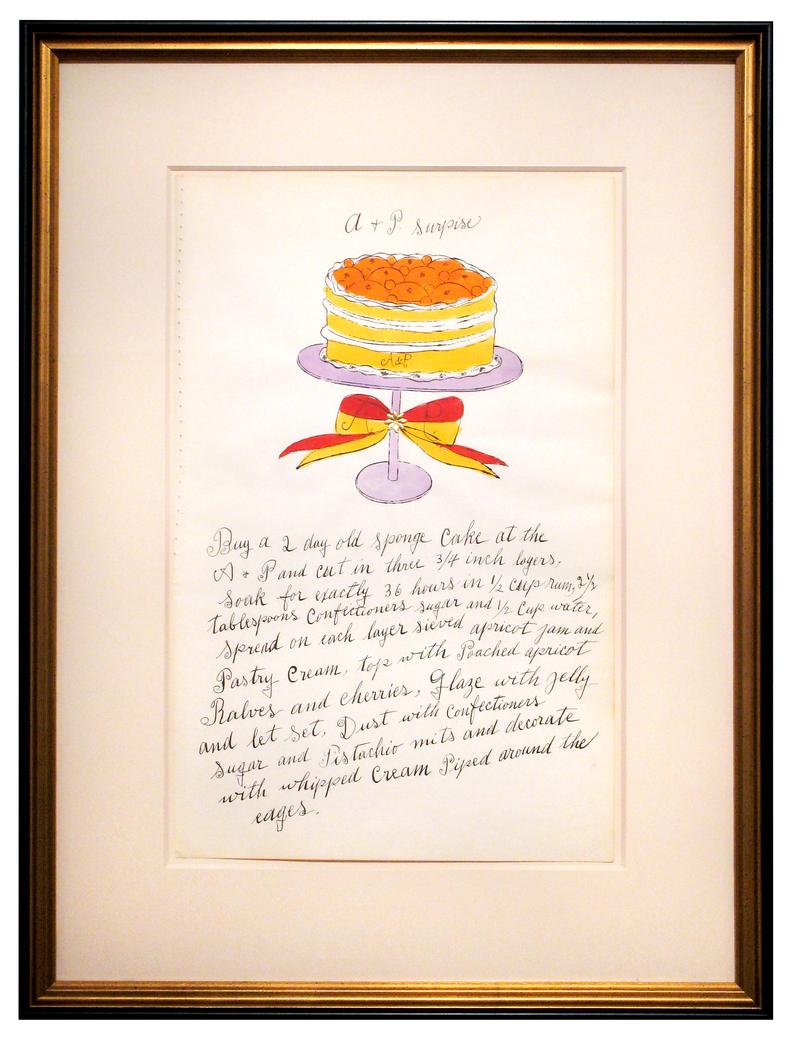 A + P. Surpise
A&P
A P
Buy a 2 day old sponge Cake at the
A + P and cut in three 3/4 inch layers,
Soak for exactly 36 hours in 1/2 cup rum, 2 1/2
tablespoons Confectioners sugar and 1/2 Cup water,
Spread on each layer sieved apricot jam and
Pastry Cream, top with Poached apricot
Ralves and cherries, Glaze with jelly
and let Set, Dust with Confectioners
Sugar and Pistachio mits and decorate
with whipped Cream Piped around the
edges.